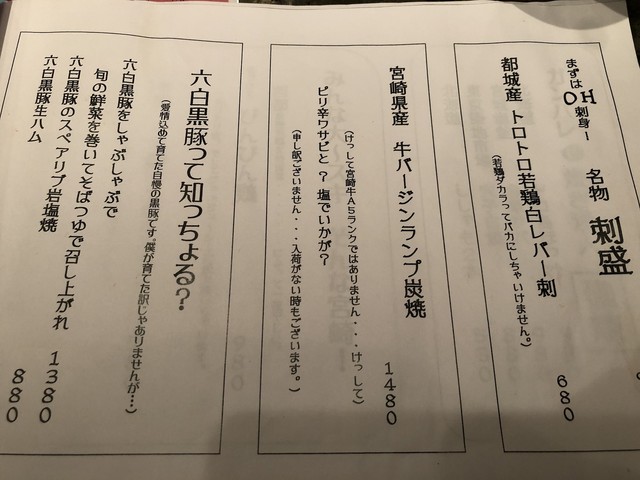 まずは OH 刺身ー 名物 刺盛
都城産 トロトロ若鶏白レバー刺 680
(若鶏ダカラってバカにしちゃいけません。)
宮崎県産 牛バージンランプ炭焼 1480
(けっして宮崎牛A5ランクではありません・・・けっして)
ピリ辛ワサビと?塩でいかが?
(申し訳ございません・・・入荷がない時もございます。)
六白黒豚って知っちょる?
(愛情込めて育てた自慢の黒豚です。僕が育てた訳じゃありませんが…)
六白黒豚をしゃぶしゃぶで
旬の鮮菜を巻いてそばつゆで召し上がれ 1380
六白黒豚のスペアリブ岩塩焼 880
六白黒豚生ハム